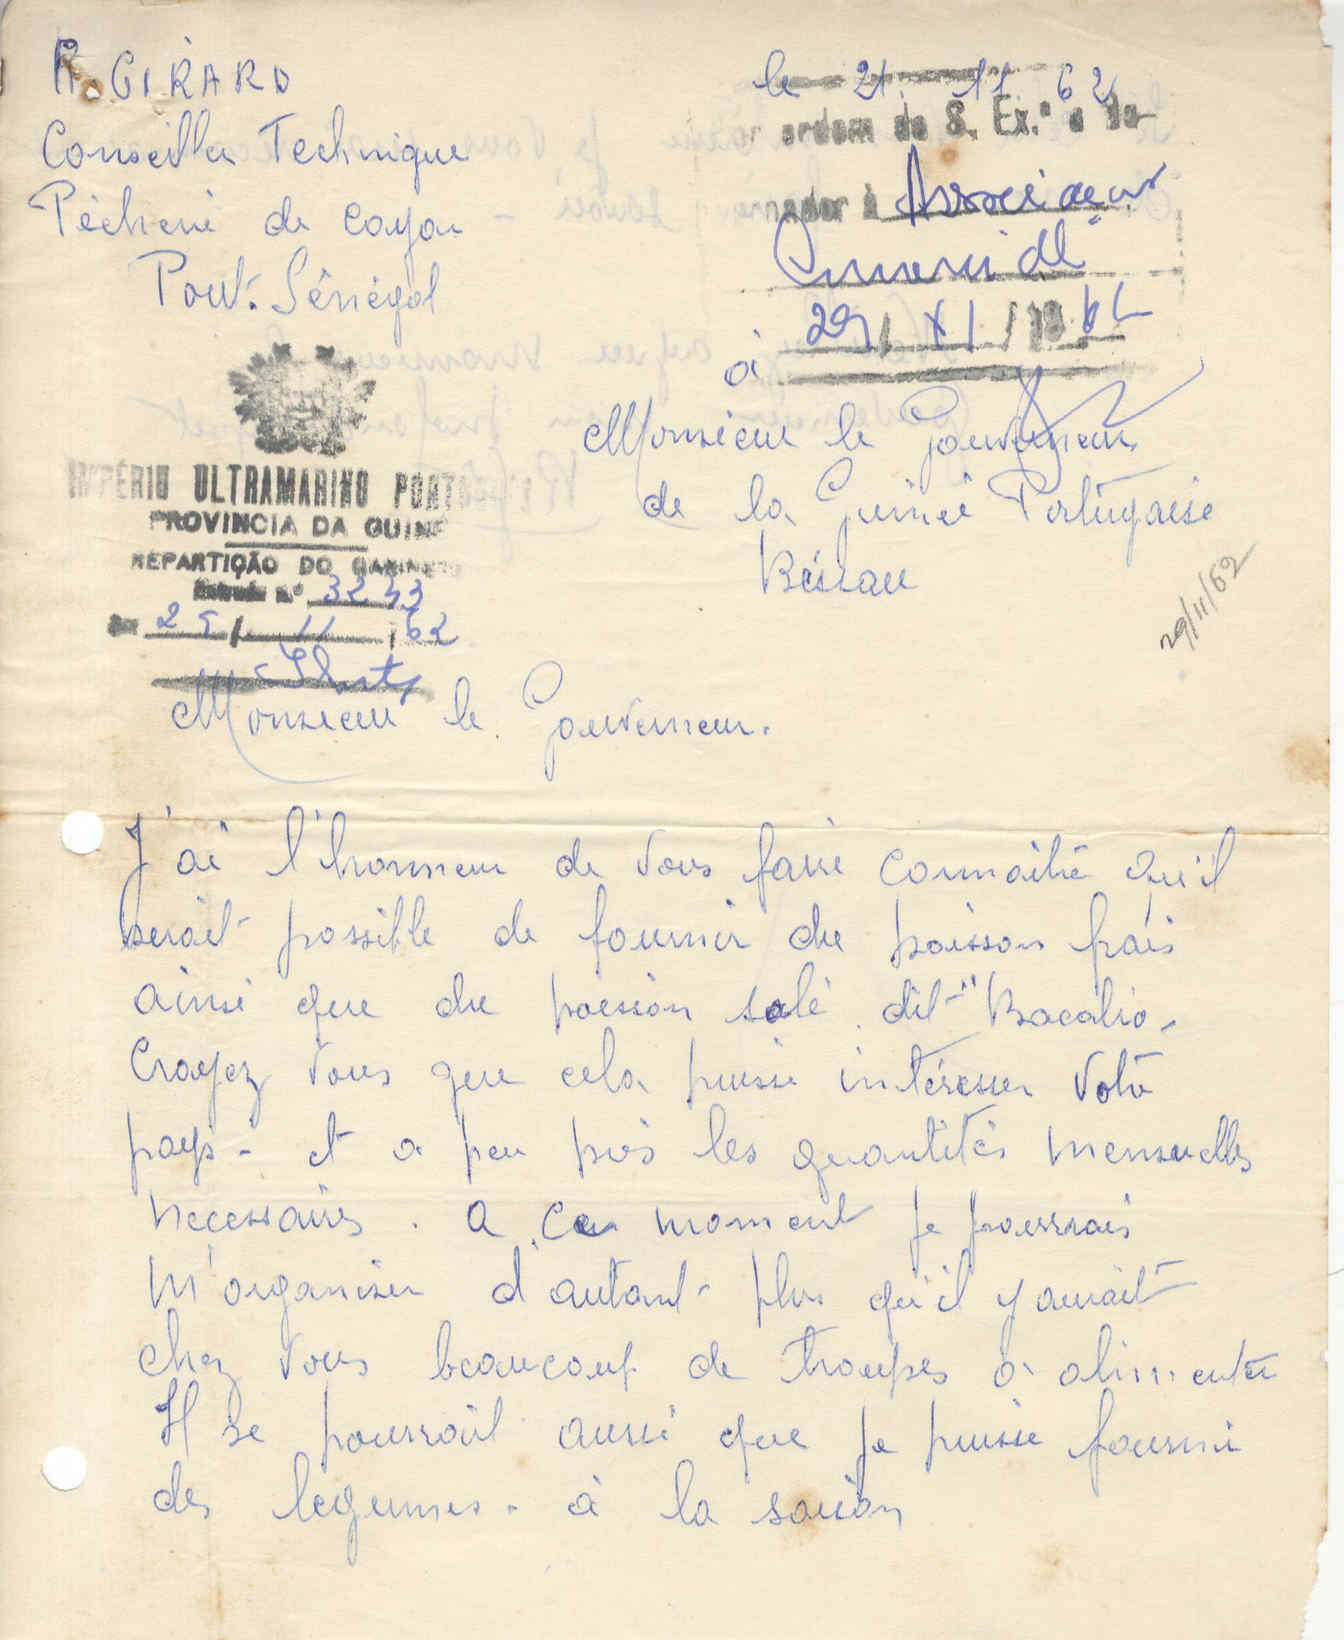 R. GIRARD
Conseiller Technique
Pêcherie de Cayar
Pout. Sénégal
le 21. 11 62
or ordem de S. Ex.ª o Go-
rnador à Associação
Comercial
29/ XI /1962
à
Monsieur le Gouverneur
de la Guinée Portugaise
Bissau
IMPÉRIO ULTRAMARINO PORTUG
PROVINCIA DA GUINÉ
REPARTIÇÃO DO GABINETE
Entrada n.º 3243
Em 29 / 11 / 62
29/11/62
Monsieur le Gouverneur.
J'ai l'honneur de vous faire connaître qu'il
serait possible de fournir du poisson frais
ainsi que du poisson salé. dit "Bacalio.
Croyez vous que cela puisse intéresser votre
pays - et a peu près les quantités mensuelles
necessaires. a ce moment je pourrais
m'organiser d'autant plus qu'il y aurait
chez vous beaucoup de troupes à alimenter
Il se pourrait aussi que je puisse fournir
des legumes - à la saison